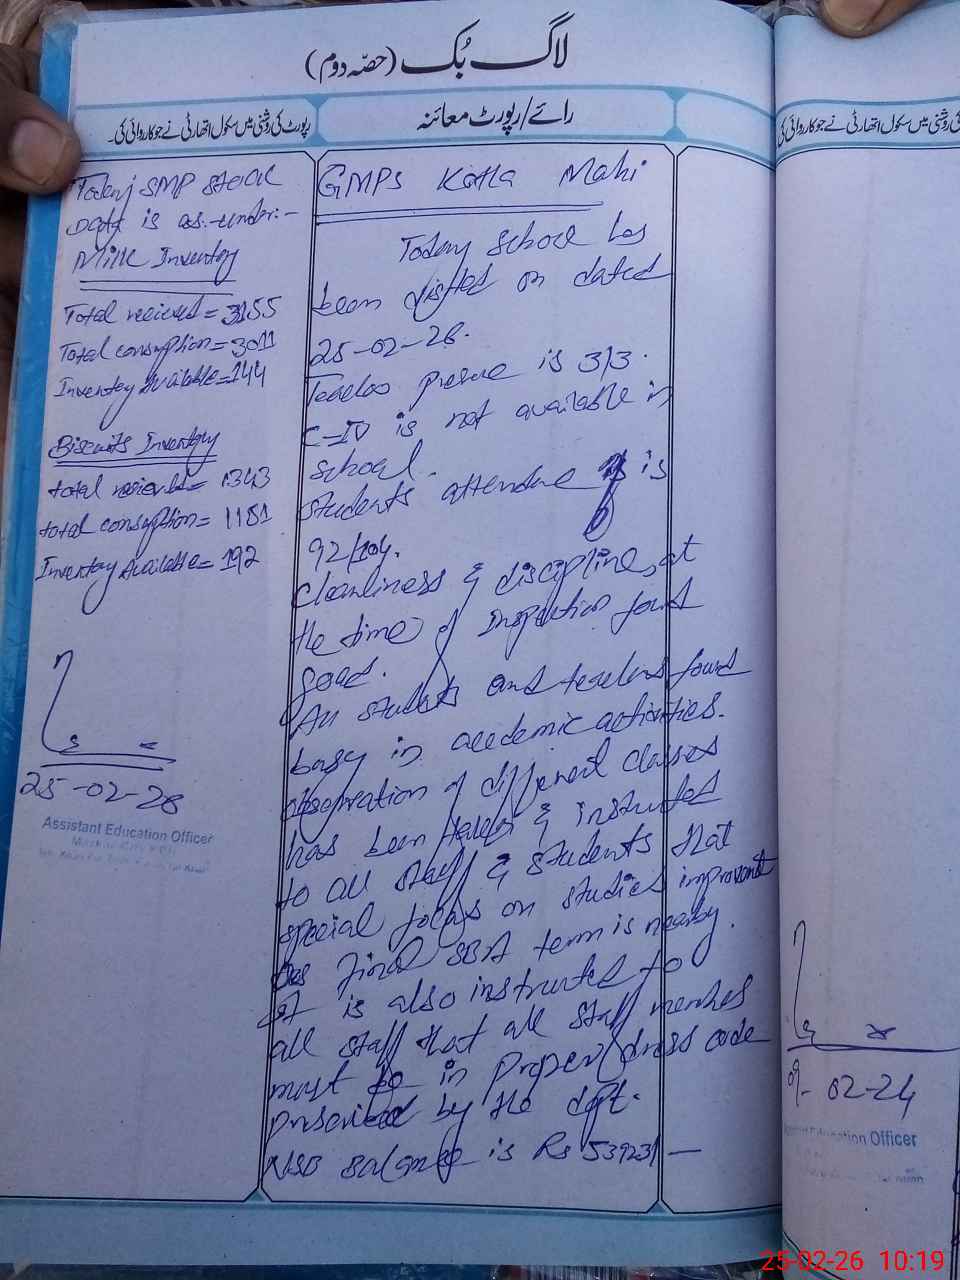 لاگ بُک (حصّہ دوم)
رپورٹ کی روشنی میں سکول اتھارٹی نے جو کارروائی کی۔
رائے/رپورٹ معائنہ
کی روشنی میں سکول اتھارٹی نے جو کارروائی کی
Today SMP stock
Data is as under:-
Milk Inventory
Total recieved = 3155
Total consuption = 3011
Inventory Available = 144
Biscuits Inventory
total recieved = 1343
total consuption = 1151
Inventory Available = 192
25-02-26
Assistant Education Officer
GMPS Kotla Mahi
Today school has
been visited on dated
25-02-26.
Teacher presence is 3/3.
C-IV is not available in
school.
students attendance is
92/104.
cleanliness & discipline, at
the time of inspection found
good.
All students and teachers found
busy in academic activities.
observation of different classes
has been taken & instructed
to all staff & students that
special focus on studies improvement
as final SBA term is nearby.
It is also instructed to
all staff that all staff members
must be in proper dress code
prescribed by the dept.
NSB Balance is Rs 539231/-
09-02-24
Education Officer
25-02-26 10:19